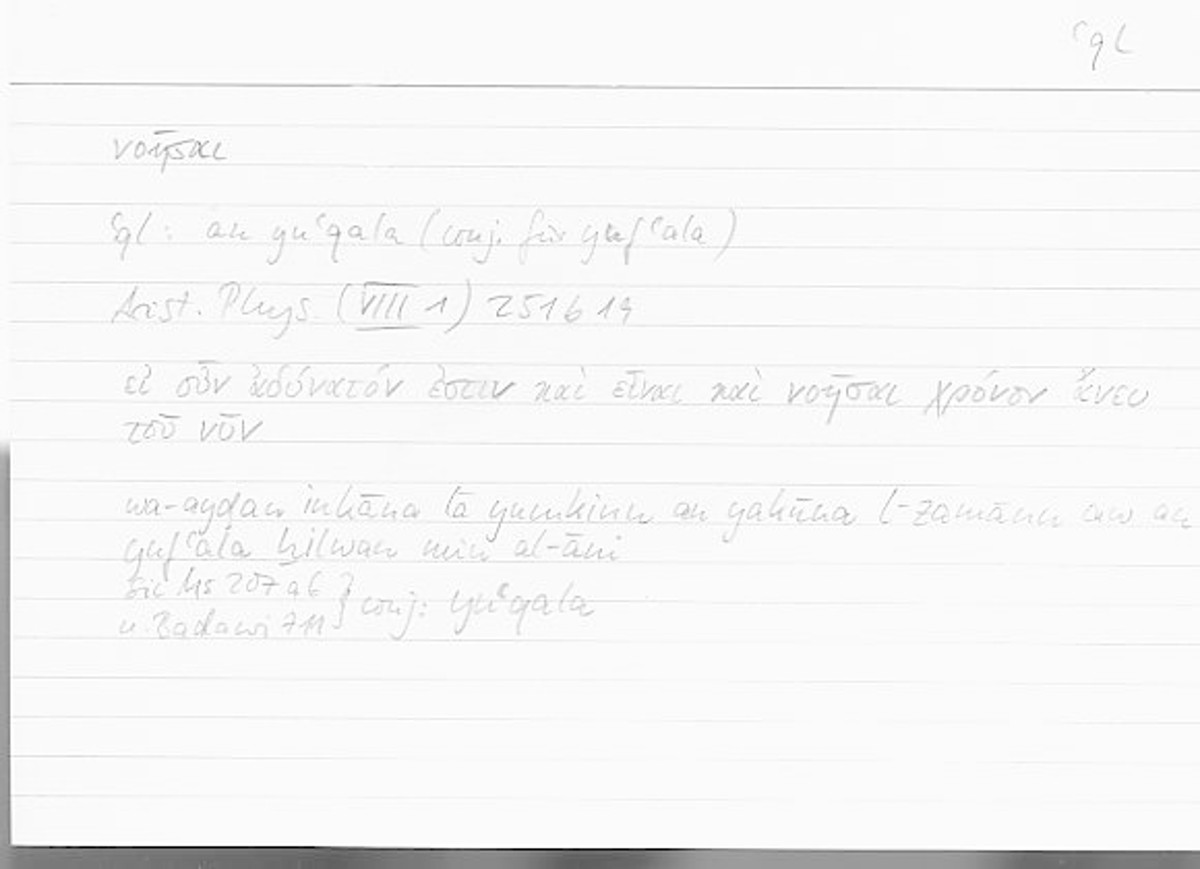 ʿql
νοῆσαι
ʿql: an yuʿqala (conj. für yufʿala)
Arist. Phys. (VIII 1) 251b19
εἰ οὖν ἀδύνατόν ἐστιν καὶ εἶναι καὶ νοῆσαι χρόνον ἄνευ
τοῦ νῦν
wa-ayḍan in kāna lā yumkinu an yakūna l-zamānu aw an
yufʿala ḫilwan min al-āni
sic Ms 207a6 } conj: yuʿqala
u. Badawi 711